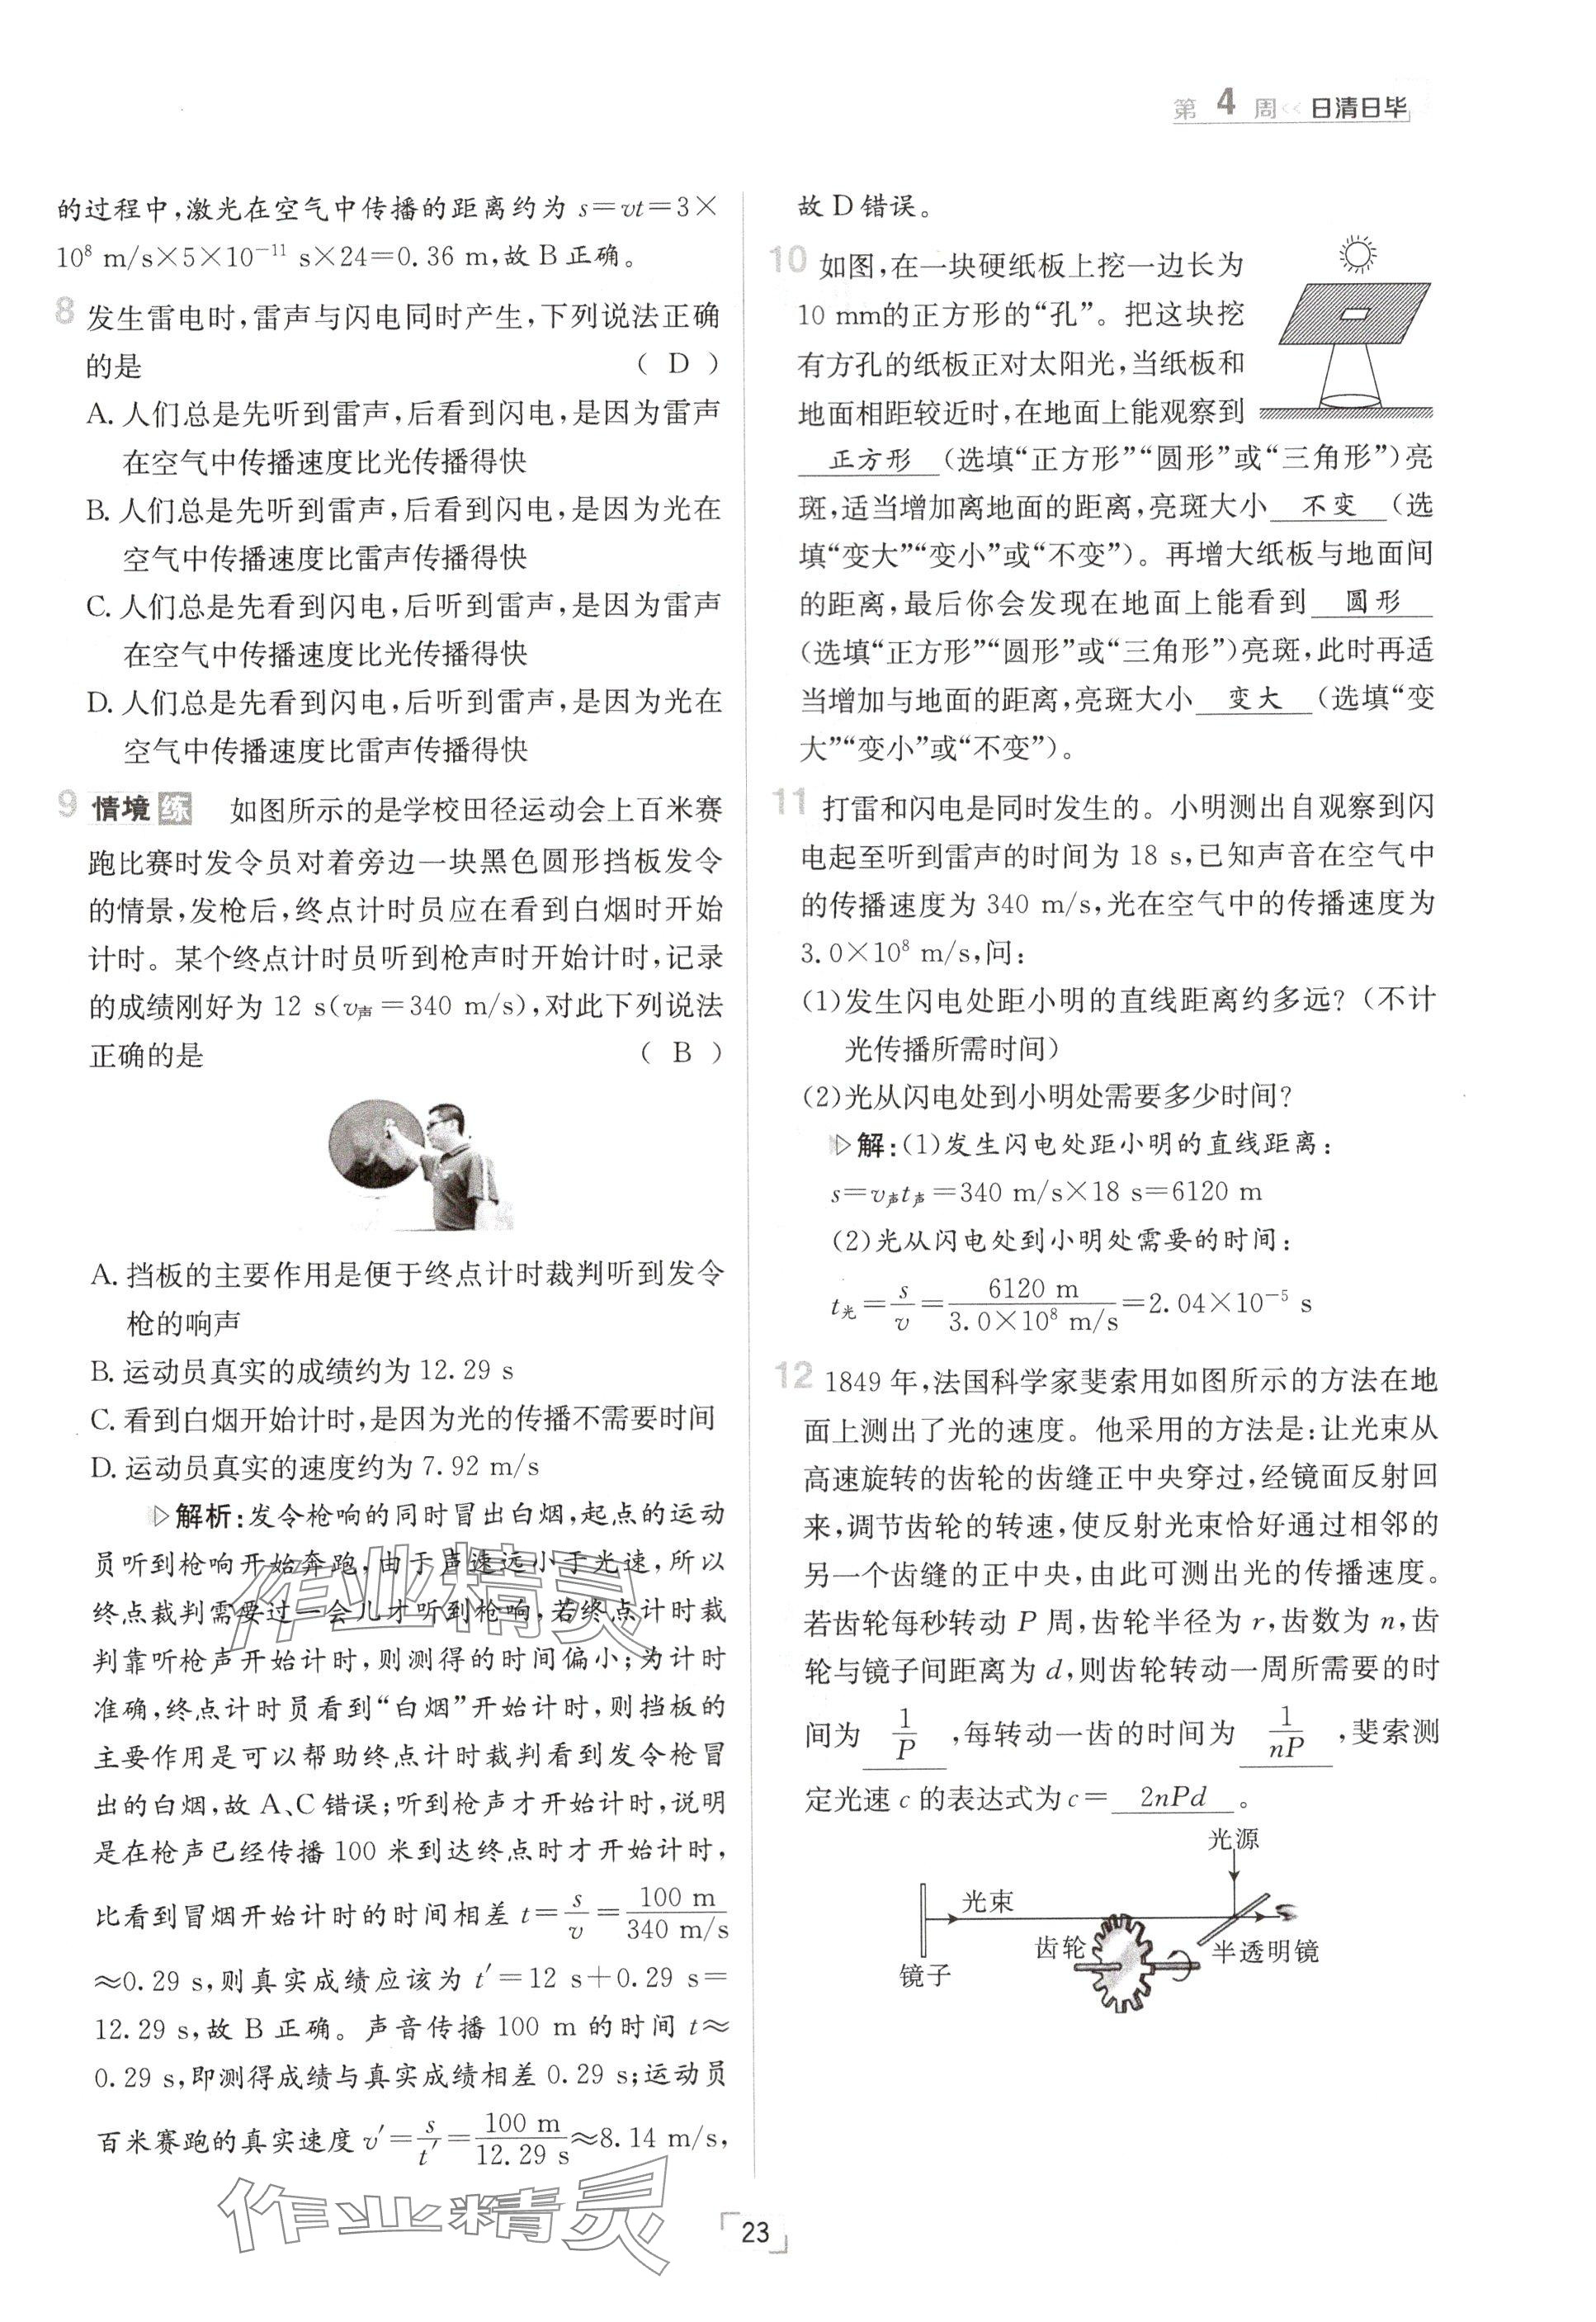 第 4 周<< 日清日毕
的过程中,激光在空气中传播的距离约为 s=vt=3×
10⁸ m/s×5×10⁻¹¹ s×24=0.36 m,故 B 正确。
8 发生雷电时,雷声与闪电同时产生,下列说法正确
的是 ( D )
A. 人们总是先听到雷声,后看到闪电,是因为雷声
在空气中传播速度比光传播得快
B. 人们总是先听到雷声,后看到闪电,是因为光在
空气中传播速度比雷声传播得快
C. 人们总是先看到闪电,后听到雷声,是因为雷声
在空气中传播速度比光传播得快
D. 人们总是先看到闪电,后听到雷声,是因为光在
空气中传播速度比雷声传播得快
9 情境练 如图所示的是学校田径运动会上百米赛
跑比赛时发令员对着旁边一块黑色圆形挡板发令
的情景,发枪后,终点计时员应在看到白烟时开始
计时。某个终点计时员听到枪声时开始计时,记录
的成绩刚好为 12 s(v声=340 m/s),对此下列说法
正确的是 ( B )
A. 挡板的主要作用是便于终点计时裁判听到发令
枪的响声
B. 运动员真实的成绩约为 12.29 s
C. 看到白烟开始计时,是因为光的传播不需要时间
D. 运动员真实的速度约为 7.92 m/s
▷解析:发令枪响的同时冒出白烟,起点的运动
员听到枪响开始奔跑,由于声速远小于光速,所以
终点裁判需要过一会儿才听到枪响,若终点计时裁
判靠听枪声开始计时,则测得的时间偏小;为计时
准确,终点计时员看到“白烟”开始计时,则挡板的
主要作用是可以帮助终点计时裁判看到发令枪冒
出的白烟,故 A、C 错误;听到枪声才开始计时,说明
是在枪声已经传播 100 米到达终点时才开始计时,
比看到冒烟开始计时的时间相差 t=s/v=100 m/340 m/s
≈0.29 s,则真实成绩应该为 t′=12 s+0.29 s=
12.29 s,故 B 正确。声音传播 100 m 的时间 t≈
0.29 s,即测得成绩与真实成绩相差 0.29 s;运动员
百米赛跑的真实速度 v′=s/t′=100 m/12.29 s≈8.14 m/s,
故 D 错误。
10 如图,在一块硬纸板上挖一边长为
10 mm的正方形的“孔”。把这块挖
有方孔的纸板正对太阳光,当纸板和
地面相距较近时,在地面上能观察到
正方形(选填“正方形”“圆形”或“三角形”)亮
斑,适当增加离地面的距离,亮斑大小 不变 (选
填“变大”“变小”或“不变”)。再增大纸板与地面间
的距离,最后你会发现在地面上能看到 圆形
(选填“正方形”“圆形”或“三角形”)亮斑,此时再适
当增加与地面的距离,亮斑大小 变大 (选填“变
大”“变小”或“不变”)。
11 打雷和闪电是同时发生的。小明测出自观察到闪
电起至听到雷声的时间为 18 s,已知声音在空气中
的传播速度为 340 m/s,光在空气中的传播速度为
3.0×10⁸ m/s,问:
(1)发生闪电处距小明的直线距离约多远?(不计
光传播所需时间)
(2)光从闪电处到小明处需要多少时间?
▷解:(1)发生闪电处距小明的直线距离:
s=v声t声=340 m/s×18 s=6120 m
(2)光从闪电处到小明处需要的时间:
t光=s/v=6120 m/3.0×10⁸ m/s=2.04×10⁻⁵ s
12 1849 年,法国科学家斐索用如图所示的方法在地
面上测出了光的速度。他采用的方法是:让光束从
高速旋转的齿轮的齿缝正中央穿过,经镜面反射回
来,调节齿轮的转速,使反射光束恰好通过相邻的
另一个齿缝的正中央,由此可测出光的传播速度。
若齿轮每秒转动 P 周,齿轮半径为 r,齿数为 n,齿
轮与镜子间距离为 d,则齿轮转动一周所需要的时
间为 1/P ,每转动一齿的时间为 1/nP ,斐索测
定光速 c 的表达式为 c= 2nPd 。
光源
光束
齿轮
半透明镜
镜子
作业精灵
作业精灵
23